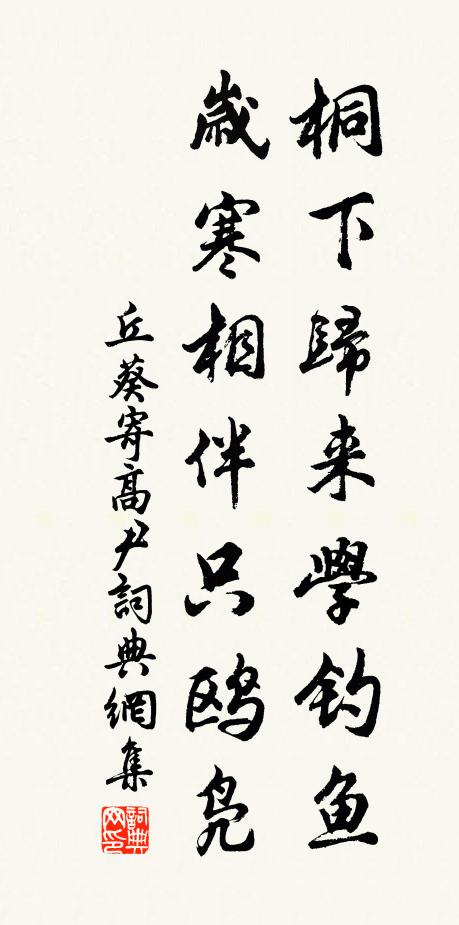 桐下歸来學钓鱼
歲寒相伴只鸥凫
丘葵寄高尹詞典網集
詞典网印